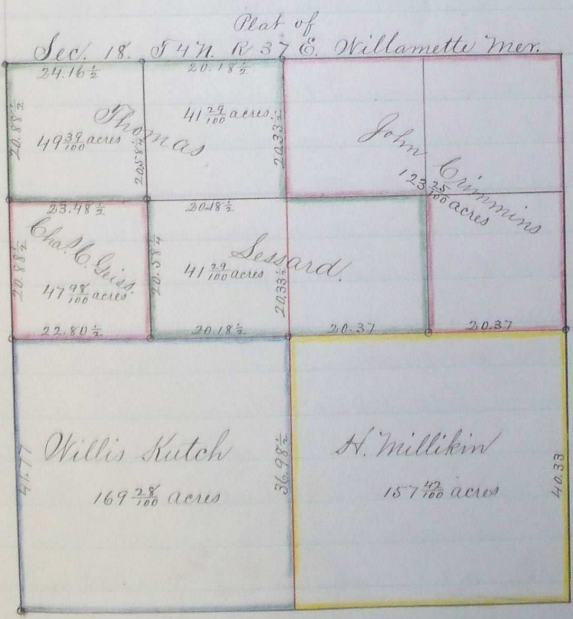 Plat of
Sec. 18. T 4 N. R 37 E. Willamette Mer.
24.16½ 20.18½
20.88½
Thomas
49 39/100 acres
20.58½
41 29/100 acres
20.33½
John Crimmins
123 25/100 acres
23.48½ 20.18½
20.88½
Chas. C. Geiss.
47 98/100 acres
20.58½
Lessard.
41 29/100 acres
20.33½
22.80½ 20.18½ 20.37 20.37
41.77
Willis Kutch
169 28/100 acres
36.98½
H. Millikin
157 42/100 acres
40.33